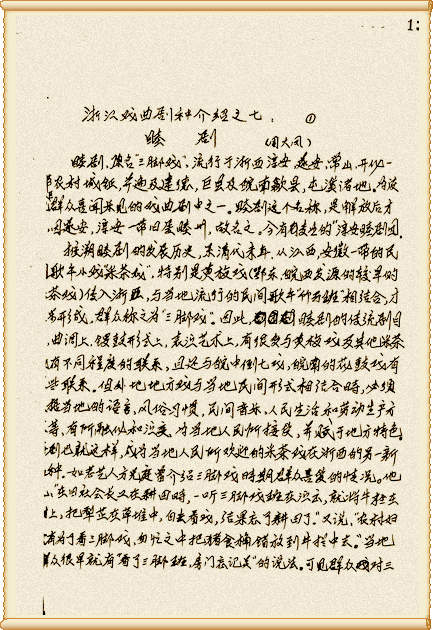 1:
浙江戏曲剧种介绍之七: ①
睦 剧
(周大风)
睦剧,原名"三脚戏",流行于浙西淳安、遂安、常山、开化一
农村城镇,并遍及建德、
群众喜闻乐见的戏曲剧种之一。睦剧这个名称,是解放后才
遂安、淳安一带旧属睦州,故名之。今有国营的"淳安睦剧团。
推溯睦剧的发展历史,系清代末年,从江西、安徽一带的民
歌舞小戏"采茶戏",特别是黄梅戏(鄂东、皖西发源的较早的
茶戏)传入浙西,与当地流行的民间歌舞"竹马班"相结合,才
形成,群众称之为"三脚戏"。因此,睦剧的传统剧目
曲调上、锣鼓形式上、表演艺术上,有很多与黄梅戏及其他采茶
有不同程度的联系,且还与皖中倒七戏,皖南的花鼓戏有
些联系。但外地地方戏与当地民间形式相结合时,必须
当地的语言,风俗习惯,民间音乐,人民生活和劳动生产方
等,有所融化和演变,为当地人民所接受,并赋于地方特色
剧也就这样,成为当地人民所欢迎的采茶戏在浙西的另一新
种。如老艺人方庭蕾介绍三脚戏时期群众喜爱的情况。他
"在旧社会长又在耕田时,一听三脚戏班在演出,就将牛拴在
上,把犁丢在草堆中,自去看戏,结果忘了耕田了。"又说,"农村妇
有为了看三脚戏,匆忙之中把猪食桶错放到牛栏中去。"当地
众很早就有"看了三脚班,房门忘记关"的说法。可见群众对三